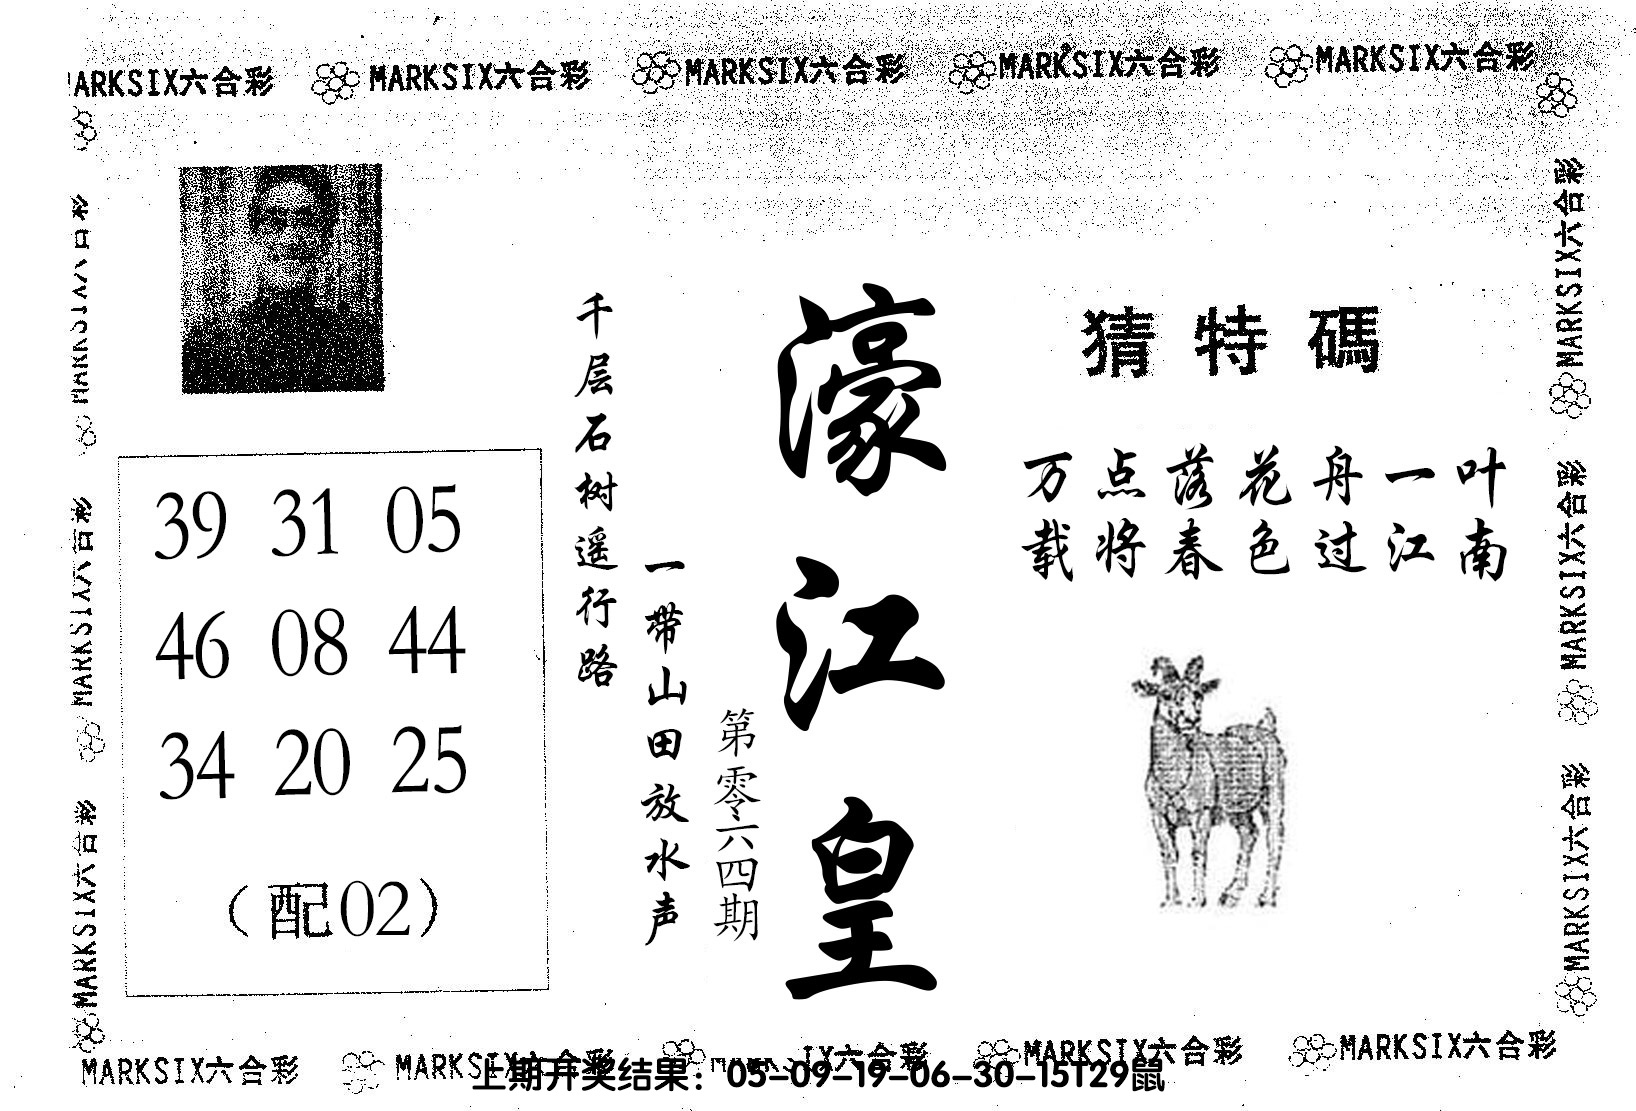 MARKSIX六合彩 MARKSIX六合彩 MARKSIX六合彩 MARKSIX六合彩
猜特碼
万点落花舟一叶
载将春色过江南
濠江皇
第零六四期
千层石树遥行路
一带山田放水声
39 31 05
46 08 44
34 20 25
（配02）
MARKSIX六合彩
MARKSIX六合彩
MARKSIX六合彩
MARKSIX六合彩
MARKSIX六合彩
MARKSIX六合彩 MARKSIX六合彩 MARKSIX六合彩 MARKSIX六合彩
上期开奖结果：05-09-19-06-30-15T29鼠